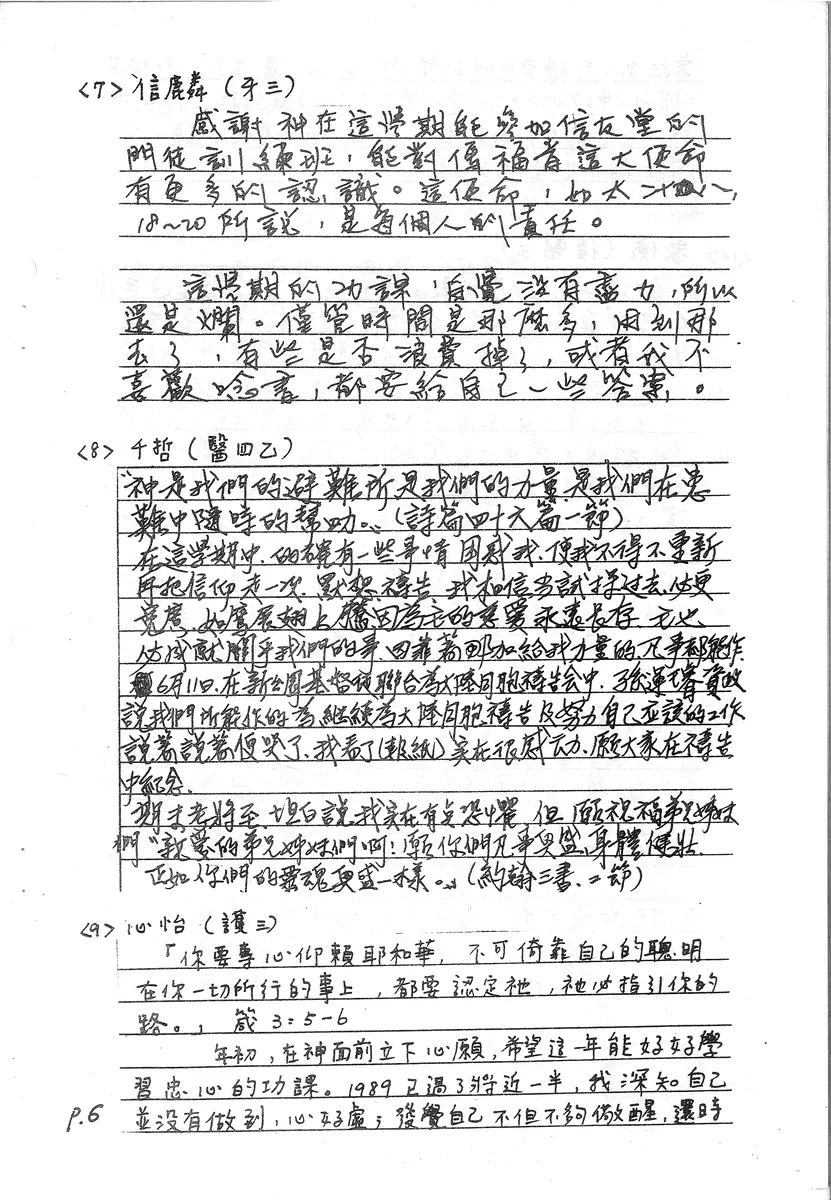 <7> 信麟 (牙三)
感謝神在這學期能參加信友堂的
門徒訓練班，能對傳福音這大使命
有更多的認識。這使命，如太
18~20 所說，是每個人的責任。
這學期的功課，自覺沒有盡力，所以
還是爛。僅管時間是那麼多，用到那
去了，有些是否浪費掉了，或者我不
喜歡唸書，都要給自己一些答案。
<8> 千哲 (醫四乙)
"神是我們的避難所是我們的力量是我們在患
難中隨時的幫助。" (詩篇四十六篇一節)
在這學期中，的確有一些事情困惑我，使我不得不重新
再把信仰走一次，默想禱告，我相信嘗試掙過去，佔更
寬廣，如鷹展翅上騰因為主的慈愛永遠長存
成就關乎我們的事，因靠著那加給我力量的凡事都能作
6月11日，在新公園基督徒聯合為大陸同胞禱告會中，孫運璿資政
說我們所能作的為繼續為大陸同胞禱告及努力自己應該的工作
說著說著便哭了，我看了(報紙)實在很感动，願大家在禱告
中紀念.
期末考將至，坦白說我实在有点恐懼，但願祝福弟兄姊妹
們 "親愛的弟兄姊妹們啊！願你們凡事興盛，身體健壯，
正如你們的靈魂興盛一樣。" (約翰三書，二節)
<9> 心怡 (護三)
「你要專心仰賴耶和華，不可倚靠自己的聰明
在你一切所行的事上，都要認定祂，祂必指引你的
路。」 箴 3:5-6
年初，在神面前立下心願，希望這一年能好好學
習忠心的功課。1989 已過了將近一半，我深知自己
並沒有做到，心好虛；發覺自己不但不夠儆醒，還時
p.6